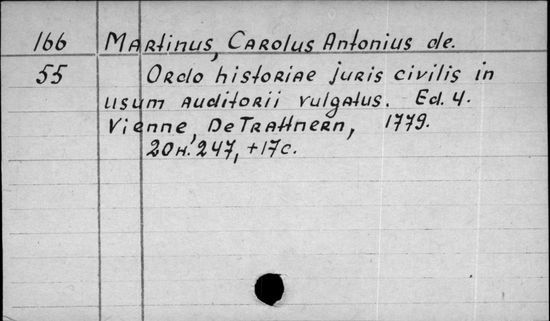 166 Martinus, Carolus Antonius de.
55 Ordo historiae juris civilis in
usum auditorii vulgatus. Ed. 4.
Vienne, De Trattnern, 1779.
20н. 247, +17c.